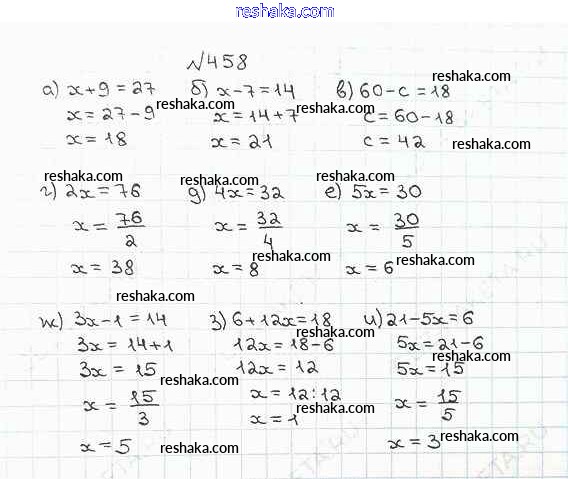 reshaka.com
№458
а) x+9=27 б) x-7=14 в) 60-c=18
reshaka.com reshaka.com reshaka.com
x=27-9 x=14+7 c=60-18
x=18 x=21 c=42
reshaka.com reshaka.com reshaka.com
г) 2x=76 д) 4x=32 е) 5x=30
x=76/2 x=32/4 x=30/5
reshaka.com reshaka.com reshaka.com
x=38 x=8 x=6
reshaka.com reshaka.com
ж) 3x-1=14 з) 6+12x=18 и) 21-5x=6
reshaka.com reshaka.com reshaka.com
3x=14+1 12x=18-6 5x=21-6
3x=15 12x=12 5x=15
reshaka.com reshaka.com reshaka.com
x=15/3 x=12:12 x=15/5
reshaka.com reshaka.com reshaka.com
x=5 x=1 x=3
reshaka.com reshaka.com reshaka.com
reshaka.com